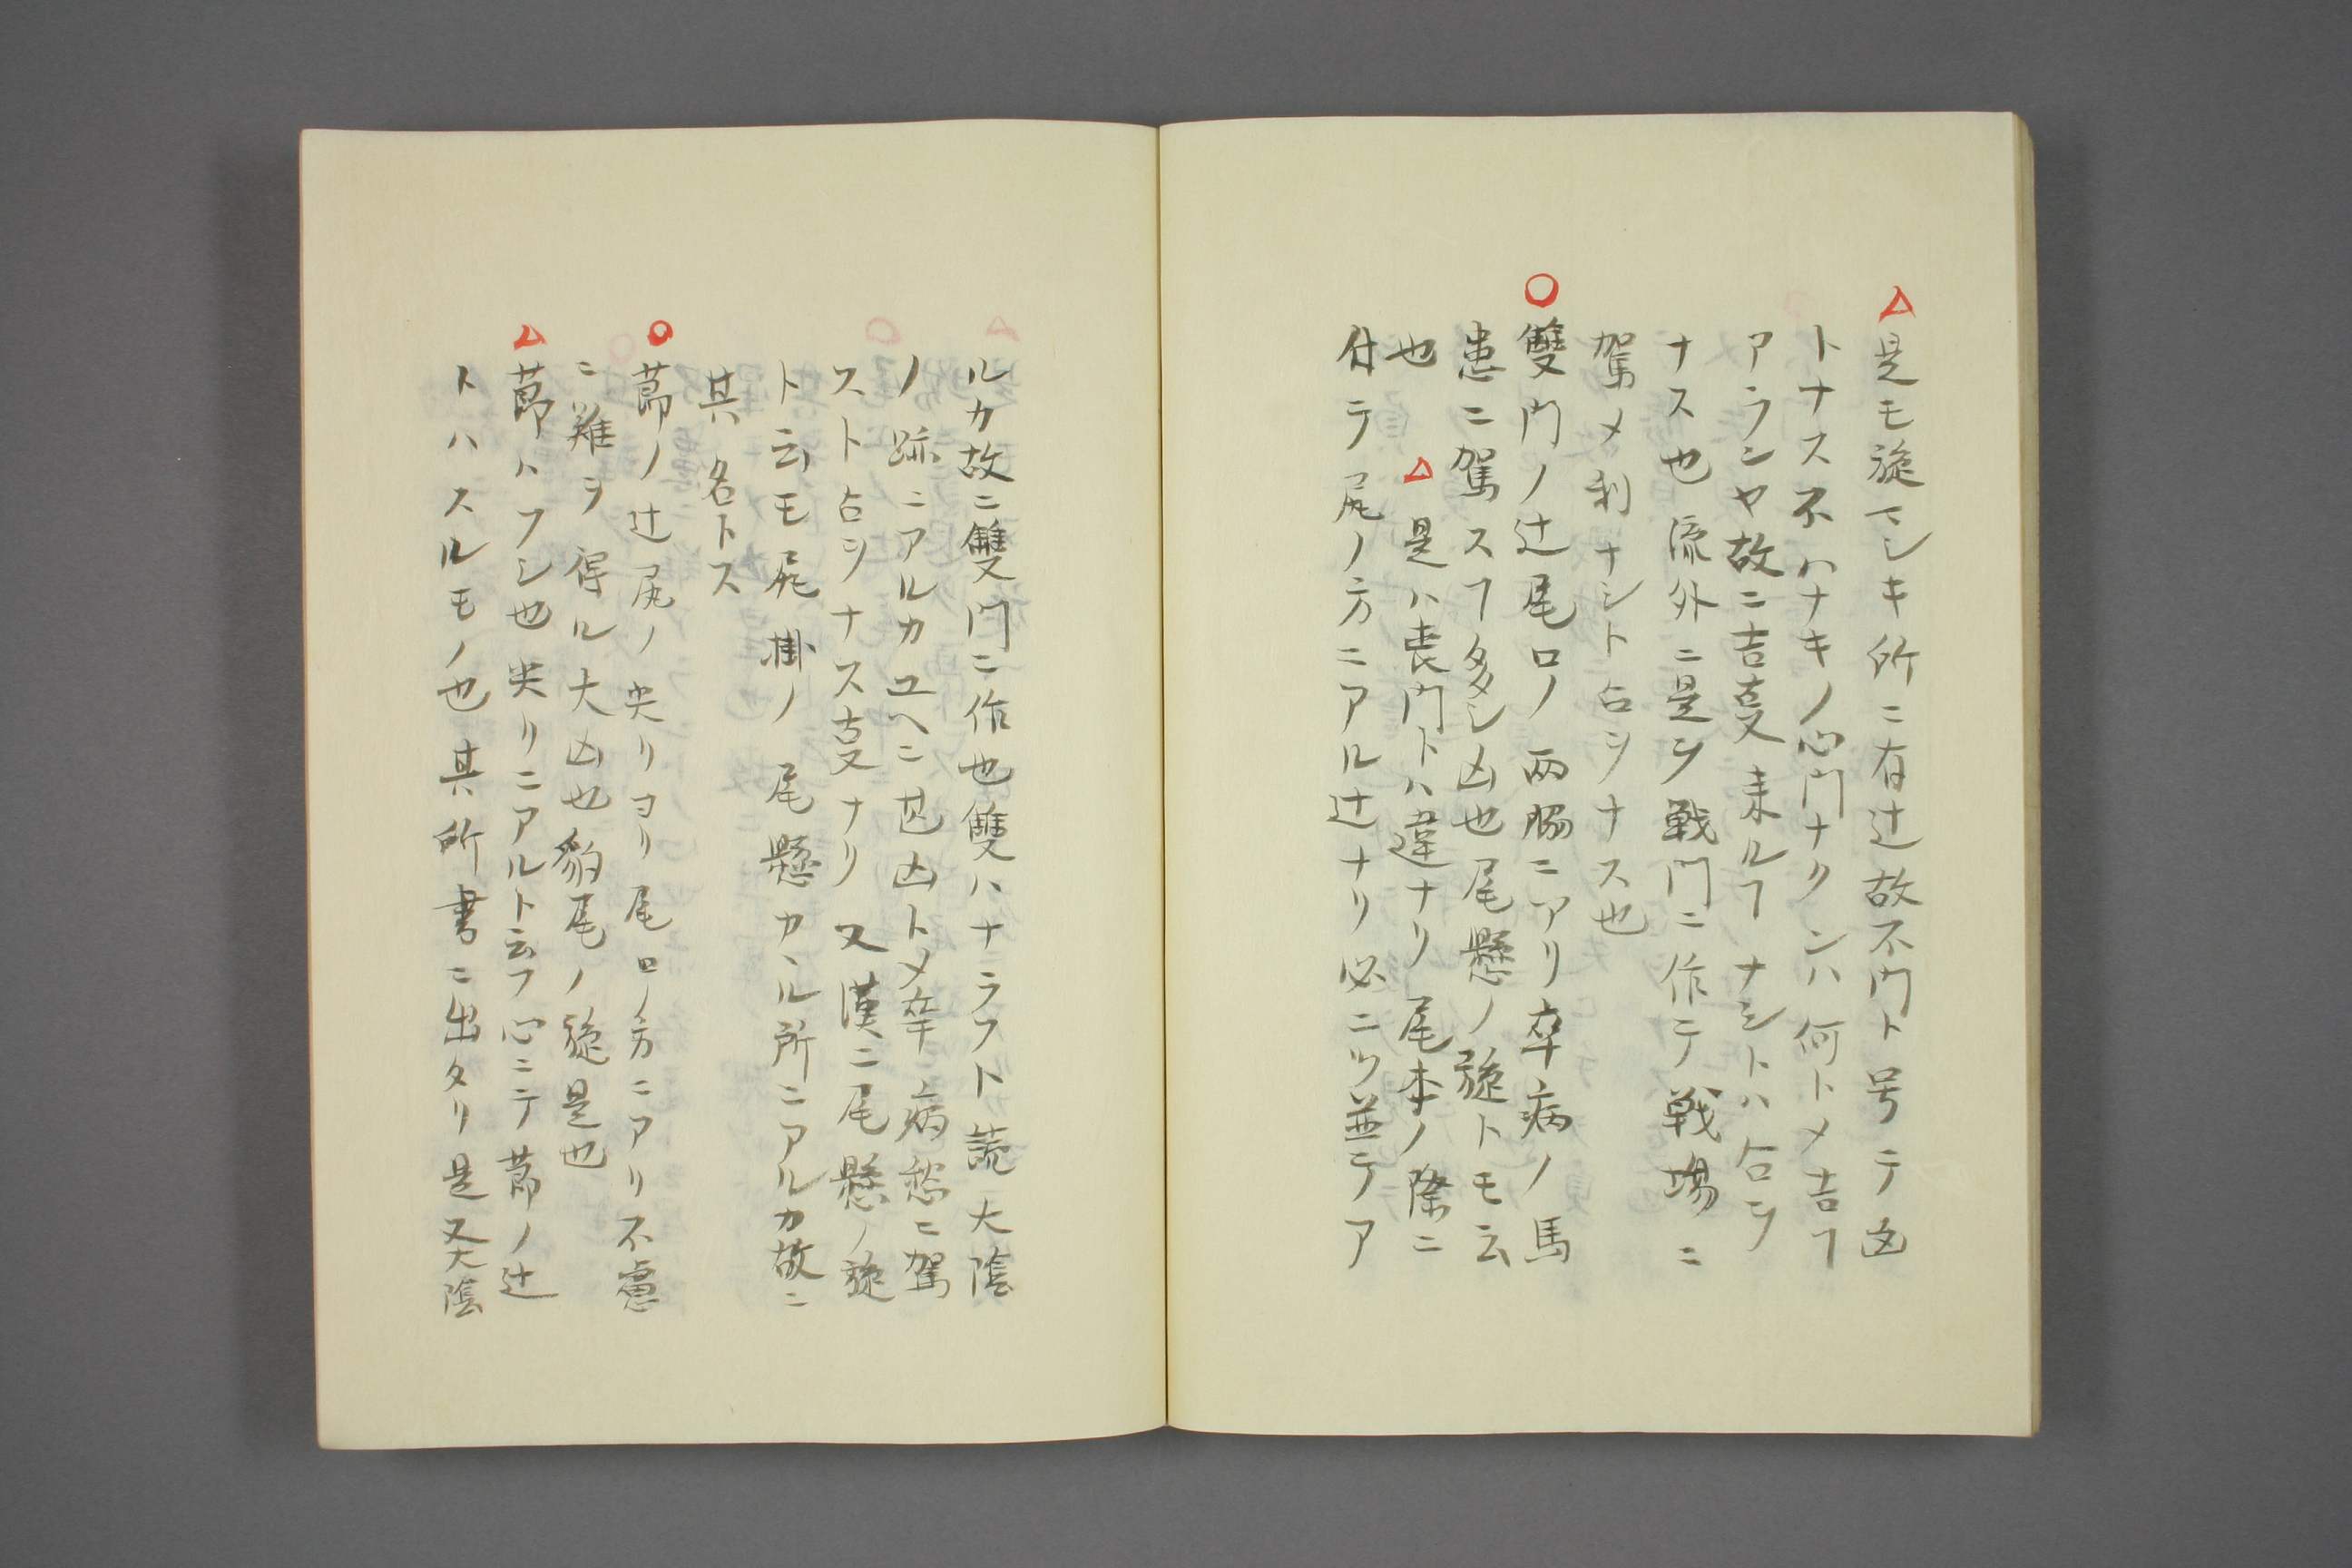 △是モ旋マシキ所ニ有辻故不門ト号テ凶
トナス不ハナキノ心門ナクンハ何トメ吉ヿ
アランヤ故ニ吉叓来ルヿナシトハ占ヲ
ナス也流外ニ是ヲ戦門ニ作テ戦場ニ
駕メ利ナシト占ヲナス也
○雙門ノ辻尾口ノ両脇ニアリ卒病ノ馬
患ニ駕スヿ多シ凶也尾懸ノ旋トモ云
也 △是ハ喪門トハ違ナリ尾本ノ際ニ
付テ尻ノ方ニアル辻ナリ必ニツ並テア
ルカ故ニ雙門ニ作也雙ハナラフト読大陰
ノ跡ニアルカユヘニ甚凶トメ卒病愁ニ駕
スト占ヲナス叓ナリ又漢ニ尾懸ノ旋
ト云モ尻掛ノ尾懸カヽル所ニアルカ故ニ
其名トス
○莭ノ辻尻ノ尖リヨリ尾口ノ方ニアリ不慮
ニ難ヲ得ル大凶也豹尾ノ旋是也
△莭ハフシ也尖リニアルト云フ心ニテ莭ノ辻
トハスルモノ也其所書ニ出タリ是又大陰